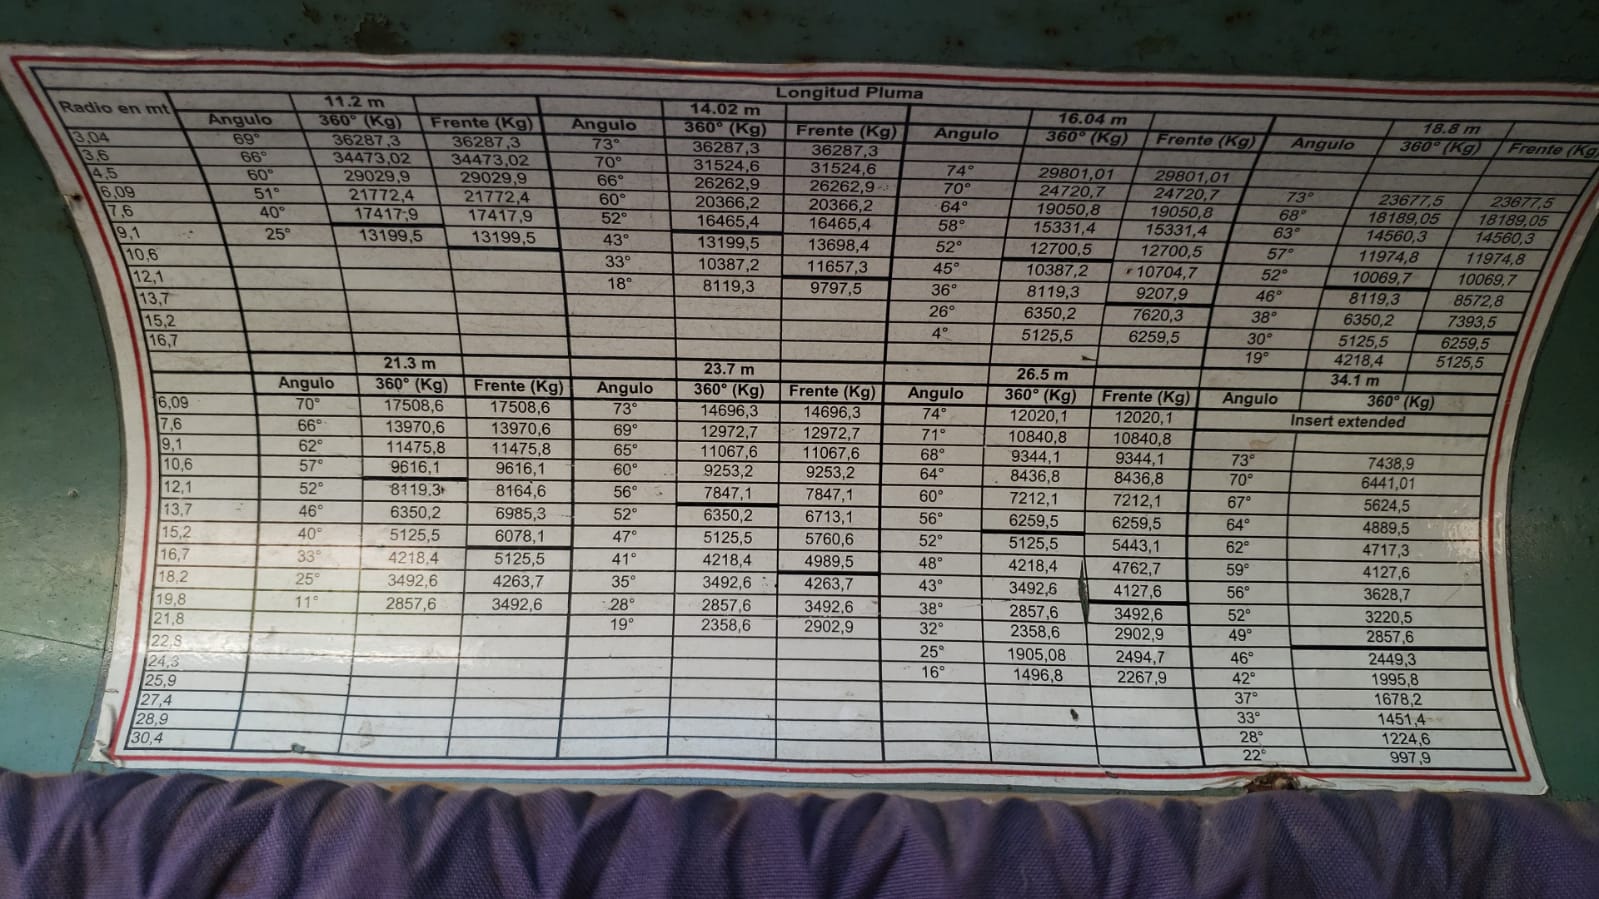 Longitud Pluma
Radio en mt 11.2 m 14.02 m 16.04 m 18.8 m
Angulo 360° (Kg) Frente (Kg) Angulo 360° (Kg) Frente (Kg) Angulo 360° (Kg) Frente (Kg) Angulo 360° (Kg) Frente (Kg)
3,04 69° 36287,3 36287,3 73° 36287,3 36287,3
3,6 66° 34473,02 34473,02 70° 31524,6 31524,6 74° 29801,01 29801,01
4,5 60° 29029,9 29029,9 66° 26262,9 26262,9 70° 24720,7 24720,7 73° 23677,5 23677,5
6,09 51° 21772,4 21772,4 60° 20366,2 20366,2 64° 19050,8 19050,8 68° 18189,05 18189,05
7,6 40° 17417,9 17417,9 52° 16465,4 16465,4 58° 15331,4 15331,4 63° 14560,3 14560,3
9,1 25° 13199,5 13199,5 43° 13199,5 13698,4 52° 12700,5 12700,5 57° 11974,8 11974,8
10,6 33° 10387,2 11657,3 45° 10387,2 10704,7 52° 10069,7 10069,7
12,1 18° 8119,3 9797,5 36° 8119,3 9207,9 46° 8119,3 8572,8
13,7 26° 6350,2 7620,3 38° 6350,2 7393,5
15,2 4° 5125,5 6259,5 30° 5125,5 6259,5
16,7 19° 4218,4 5125,5
21.3 m 23.7 m 26.5 m 34.1 m
Angulo 360° (Kg) Frente (Kg) Angulo 360° (Kg) Frente (Kg) Angulo 360° (Kg) Frente (Kg) Angulo 360° (Kg)
6,09 70° 17508,6 17508,6 73° 14696,3 14696,3 74° 12020,1 12020,1 Insert extended
7,6 66° 13970,6 13970,6 69° 12972,7 12972,7 71° 10840,8 10840,8
9,1 62° 11475,8 11475,8 65° 11067,6 11067,6 68° 9344,1 9344,1 73° 7438,9
10,6 57° 9616,1 9616,1 60° 9253,2 9253,2 64° 8436,8 8436,8 70° 6441,01
12,1 52° 8119,3 8164,6 56° 7847,1 7847,1 60° 7212,1 7212,1 67° 5624,5
13,7 46° 6350,2 6985,3 52° 6350,2 6713,1 56° 6259,5 6259,5 64° 4889,5
15,2 40° 5125,5 6078,1 47° 5125,5 5760,6 52° 5125,5 5443,1 62° 4717,3
16,7 33° 4218,4 5125,5 41° 4218,4 4989,5 48° 4218,4 4762,7 59° 4127,6
18,2 25° 3492,6 4263,7 35° 3492,6 4263,7 43° 3492,6 4127,6 56° 3628,7
19,8 11° 2857,6 3492,6 28° 2857,6 3492,6 38° 2857,6 3492,6 52° 3220,5
21,8 19° 2358,6 2902,9 32° 2358,6 2902,9 49° 2857,6
22,8 25° 1905,08 2494,7 46° 2449,3
24,3 16° 1496,8 2267,9 42° 1995,8
25,9 37° 1678,2
27,4 33° 1451,4
28,9 28° 1224,6
30,4 22° 997,9